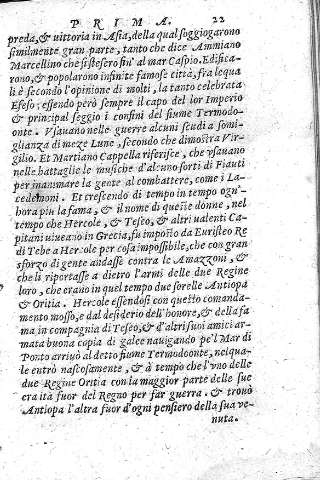 PRIMA. 22
preda, & uittoria in Asia, della qual soggiogarono
similmente gran parte, tanto che dice Ammiano
Marcellino che si stesero fin' al mar Caspio. Edifica-
rono, & popolarono infinite famose città, fra lequa
li è secondo l'opinione di molti, la tanto celebrata
Efeso: essendo però sempre il capo del lor Imperio
& principal seggio i confini del fiume Termodo-
onte. Vsauano nelle guerre alcuni scudi a somi-
glianza di meze Lune, secondo che dimostra Vir-
gilio. Et Martiano Cappella riferisce, che vsauano
nelle battaglie le musiche d'alcuno sorti di Flauti
per inanimare la gente al combattere, come i La-
cedemoni. Et crescendo di tempo in tempo ogn'
hora piu la fama, & il nome di queste donne, nel
tempo che Hercole, & Teseo, & altri ualenti Ca-
pitani uiueano in Grecia, fu imposto da Euristeo Re
di Tebe a Hercole per cosa impossibile, che con gran
sforzo di gente andasse contra le Amazzoni, &
che li riportasse a dietro l'armi delle due Regine
loro, che erano in quel tempo due sorelle Antiopa
& Oritia. Hercole essendosi con questo comanda-
mento mosso, e dal desiderio dell'honore, & della fa
ma in compagnia di Teseo, & d'altri suoi amici ar-
mata buona copia di galee nauigando pe'l Mar di
Ponto arriuò al detto fiume Termodoonte, nelqua-
le entrò nascosamente, & à tempo che l'vno delle
due Regine Oritia con la maggior parte delle sue
era ita fuor del Regno per far guerra. & trouò
Antiopa l'altra fuor d'ogni pensiero della sua ve-
nuta.